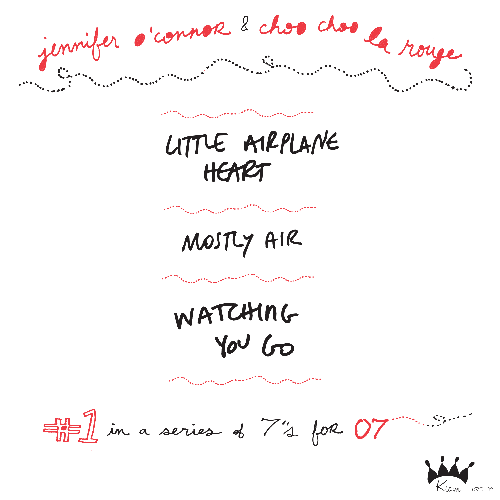 jennifer o'connor & choo choo la rouge
LITTLE AIRPLANE
HEART
MOSTLY AIR
WATCHING
YOU GO
#1 in a series of 7"s for 07